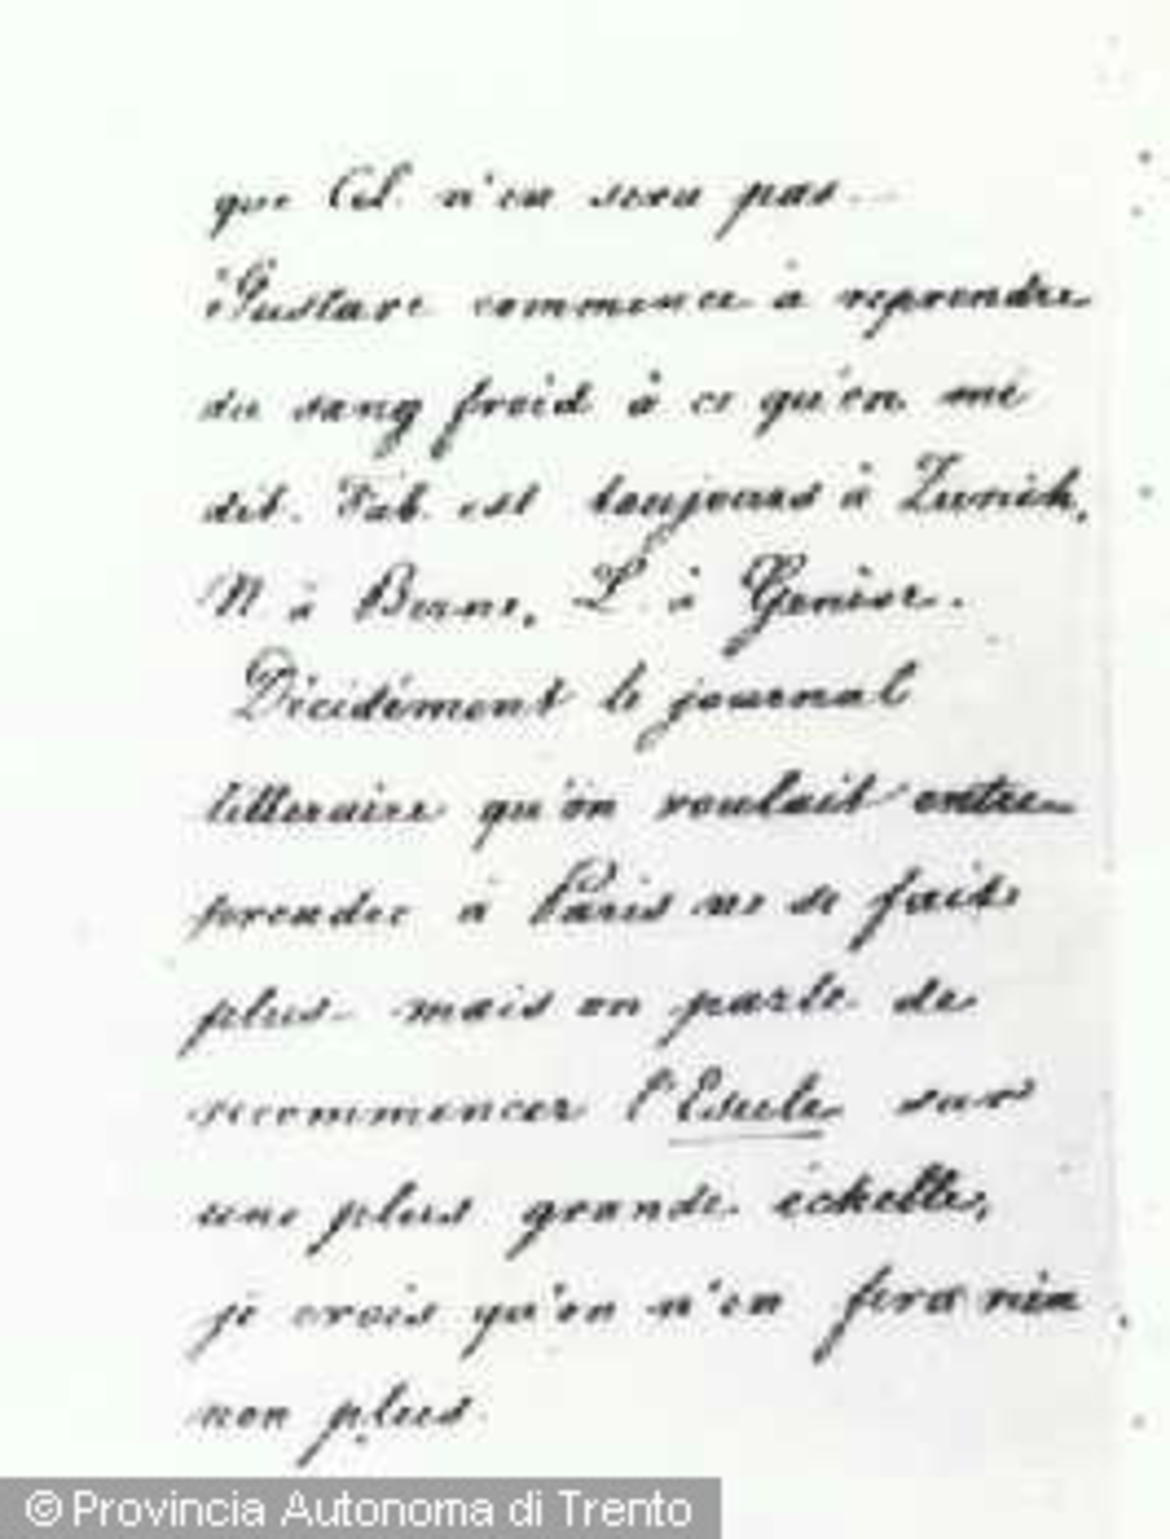 que Cel. n'en sera pas.
Gustave commence à reprendre
du sang froid à ce qu'on me
dit. Fab. est toujours à Zurich,
N. à Berne, L. à Genève.
Décidément le journal
litteraire qu'on voulait entre
prendre à Paris ne se faite
plus - mais on parle de
recommencer l'Esule sur
une plus grande échelle,
je crois qu'on n'en fera rien
non plus.
© Provincia Autonoma di Trento